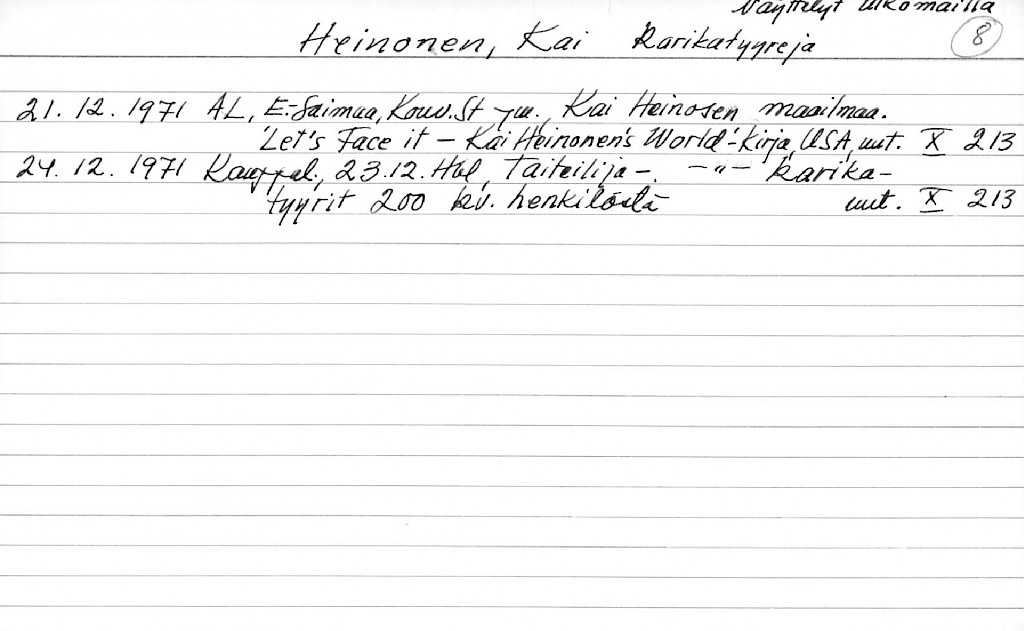 Näyttelyt ulkomailla
Heinonen, Kai Karikatyyreja 8
21. 12. 1971 AL, E-Saimaa, Kouv. St ym., Kai Heinosen maailmaa.
'Let's Face it - Kai Heinonen's World'-Kirja, USA, uut. X 213
24. 12. 1971 Kauppal., 23.12. Hbl, Taiteilija-. -"- karika-
tyyrit 200 kv. henkilöstä uut. X 213